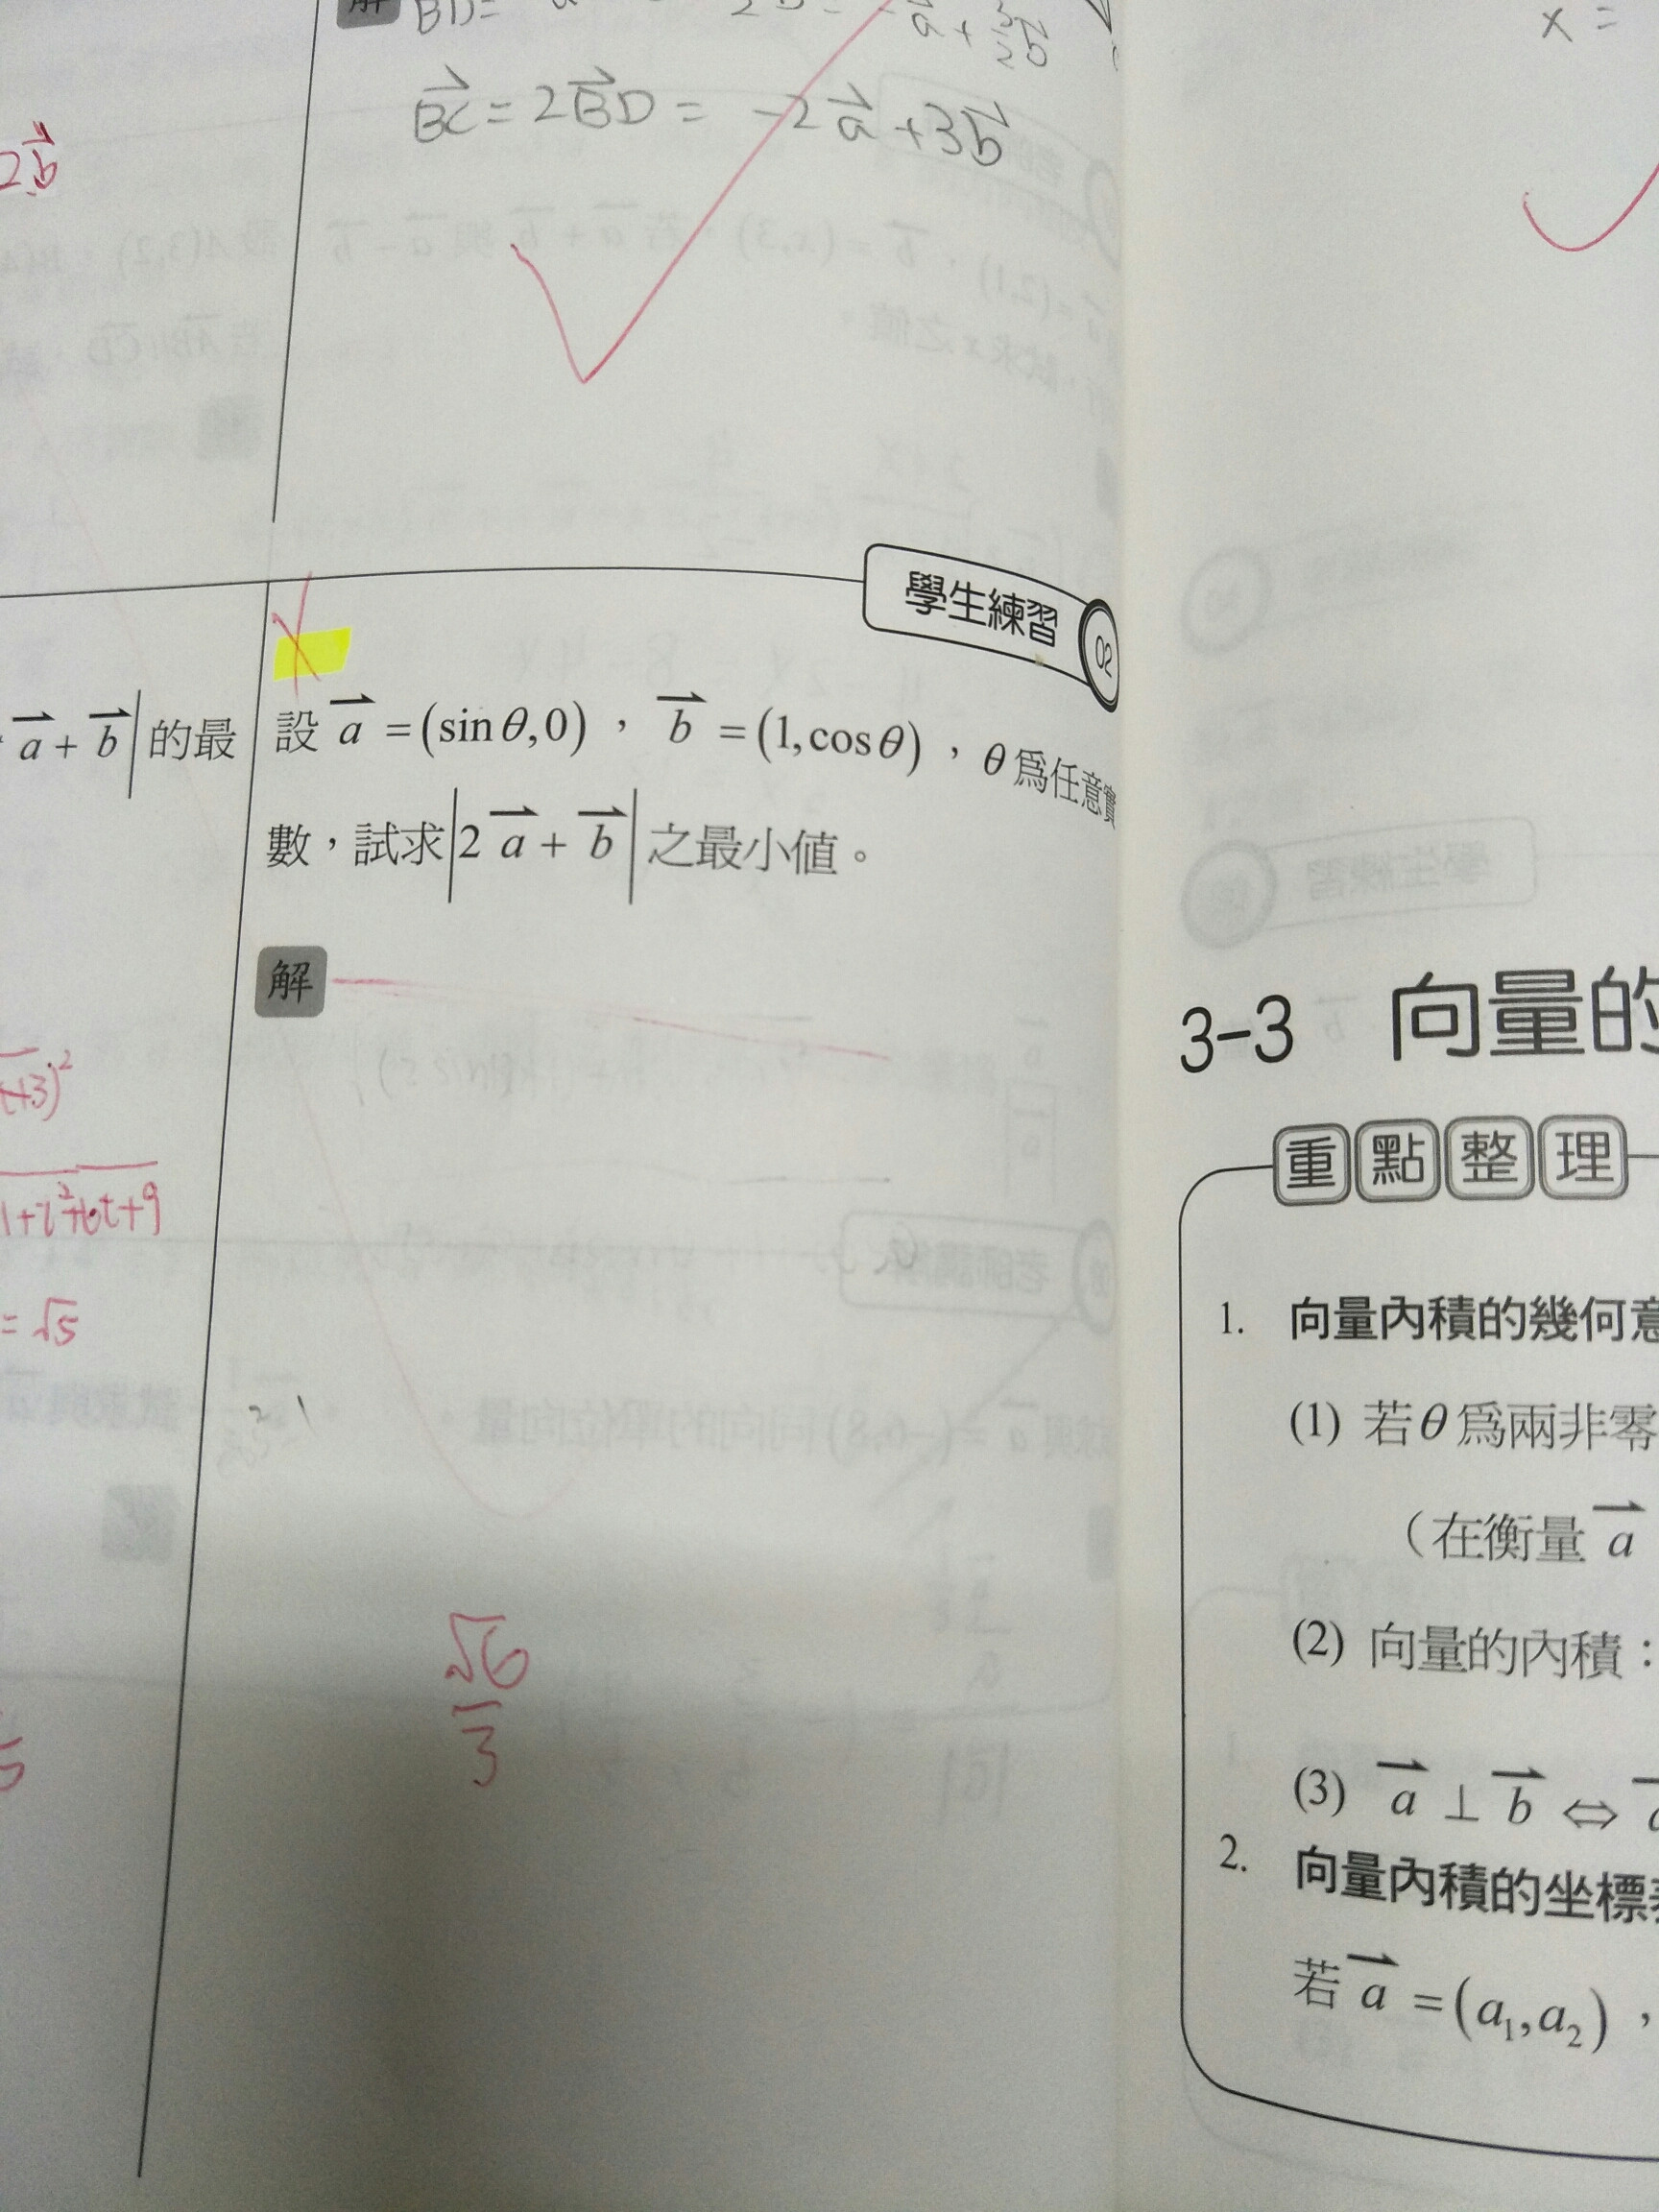 BC = 2BD = -2a + 3b
2b
x =
學生練習 02
a + b| 的最
設 a = (sinθ,0)，b = (1,cosθ)，θ為任意實
數，試求|2a + b|之最小值。
解
+3)²
1+t²+6t+9
= √5
√6/3
3-3 向量的
重點整理
1. 向量內積的幾何意
(1) 若θ為兩非零
（在衡量 a
(2) 向量的內積：
(3) a ⊥ b ⇔
2. 向量內積的坐標表
若 a = (a₁,a₂)，